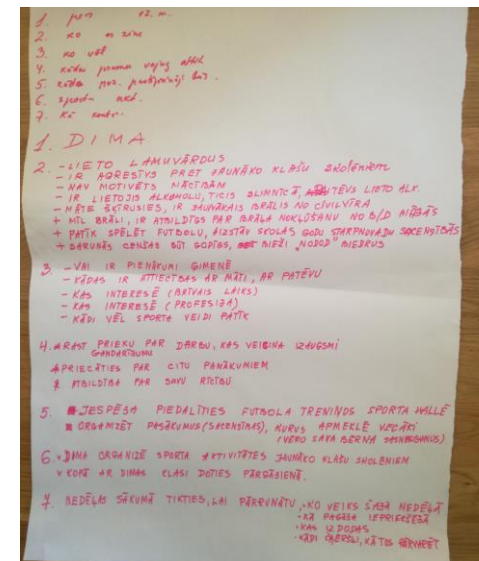 1.
2. KO
3. KO VĒL
4.
5.
6.
7. Kā
1. DIMA
2. - LIETO LAMUVĀRDUS
- IR AGRESĪVS PRET JAUNĀKO KLAŠU SKOLĒNIEM
- NAV MOTIVĒTS MĀCĪBĀM
- IR LIETOJIS ALKOHOLU, TICIS SLIMNĪCĀ, TĒVS LIETO ALK.
- MĀTE ŠĶĪRUSIES, IR JAUNĀKAIS BRĀLIS NO CIVILVĪRA
+ MĪL BRĀLI, IR ATBILDĪGS PAR BRĀĻA NOKĻŪŠANU NO B/D MĀJĀS
+ PATĪK SPĒLĒT FUTBOLU, AIZSTĀV SKOLAS GODU STARPNOVADU SACENSĪBĀS
+ SARUNĀS CENŠAS BŪT GODĪGS, BIEŽI "NODOD" BIEDRUS
3. - VAI IR PIENĀKUMI ĢIMENĒ
- KĀDAS IR ATTIECĪBAS AR MĀTI, AR PATĒVU
- KAS INTERESĒ (BRĪVAIS LAIKS)
- KAS INTERESĒ (PROFESIJA)
- KĀDI VĒL SPORTA VEIDI PATĪK
4. RAST PRIEKU PAR DARBU, KAS VEICINA IZAUGSMI
GANDARĪJUMU
PRIECĀTIES PAR CITU PANĀKUMIEM
ATBILDĪBA PAR SAVU RĪCĪBU
5. IESPĒJA PIEDALĪTIES FUTBOLA TRENIŅOS SPORTA HALLĒ
ORGANIZĒT PASĀKUMUS (SACENSĪBAS), KURUS APMEKLĒ VECĀKI
(VĒRO SAVA BĒRNA SASNIEGUMUS)
6. DIMA ORGANIZĒ SPORTA AKTIVITĀTES JAUNĀKO KLAŠU SKOLĒNIEM
KOPĀ AR DIMAS KLASI DOTIES PĀRGĀJIENĀ.
7. NEDĒĻAS SĀKUMĀ TIKTIES, LAI PĀRRUNĀTU, - KO VEIKS ŠAJĀ NEDĒĻĀ
- KĀ PAGĀJA IEPRIEKŠĒJĀ
- KAS IZDODAS
- KĀDI ŠĶĒRŠĻI, KĀ TOS PĀRVARĒT